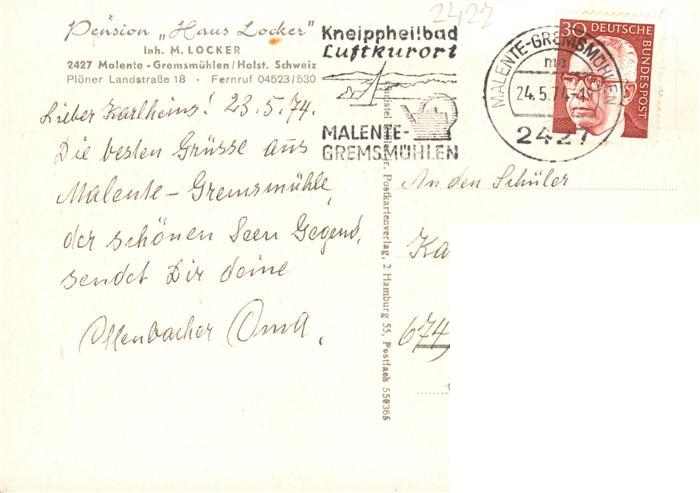 Pension „Haus Locker"
Inh. M. LOCKER
2427 Malente - Gremsmühlen / Holst. Schweiz
Plöner Landstraße 18 · Fernruf 04523/530
Lieber Karlheinz! 23.5.74.
Die besten Grüsse aus
Malente-Gremsmühle,
der schönen Seen Gegend,
sendet Dir deine
Offenbacher Oma.
2427
Kneippheilbad
Luftkurort
MALENTE-
GREMSMÜHLEN
MALENTE-GREMSMÜHLEN
24.5.74
2427
30 DEUTSCHE BUNDESPOST
Postkartenverlag, 2 Hamburg 55, Postfach 550365
An den Schüler
Ka
674